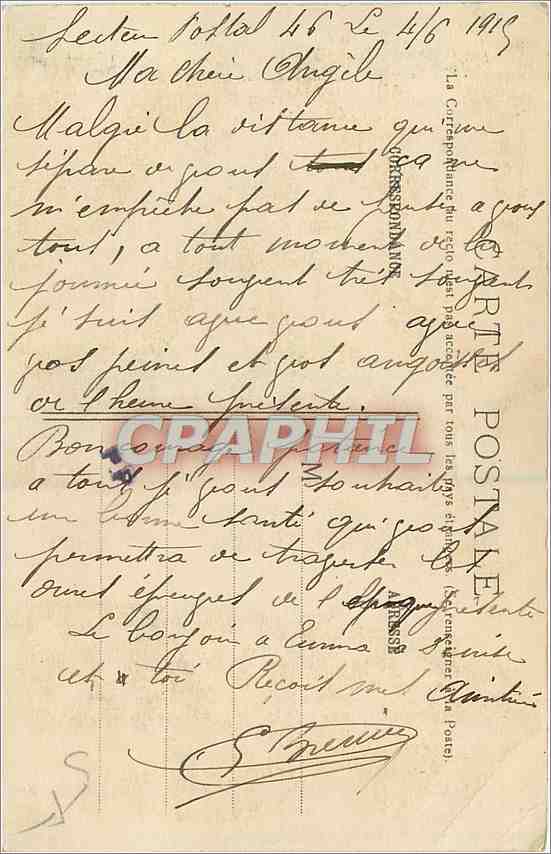 Secteur Postal 46 Le 4/6 1915
Ma chère Angèle
Malgré la distance qui me
sépare de gous ça ne
m'empêche pas de penser a gous
tous, a tout moment de la
journée sougent très sougent
je suis ague gous ague
gos peines et gos angoisses
de l'heure présente.
Bon courage patience
a tous je gous souhaite
une bonne santé qui gous
permettra de tragerser les
dures épreuges de l'époque présente
Le bonjour a Emma Suite
et a toi Reçoit mes Amitiés
CARTE POSTALE
La Correspondance au recto n'est pas acceptée par tous les pays étrangers. (Se renseigner à la Poste).
CORRESPONDANCE
ADRESSE
M
CPARPHIL